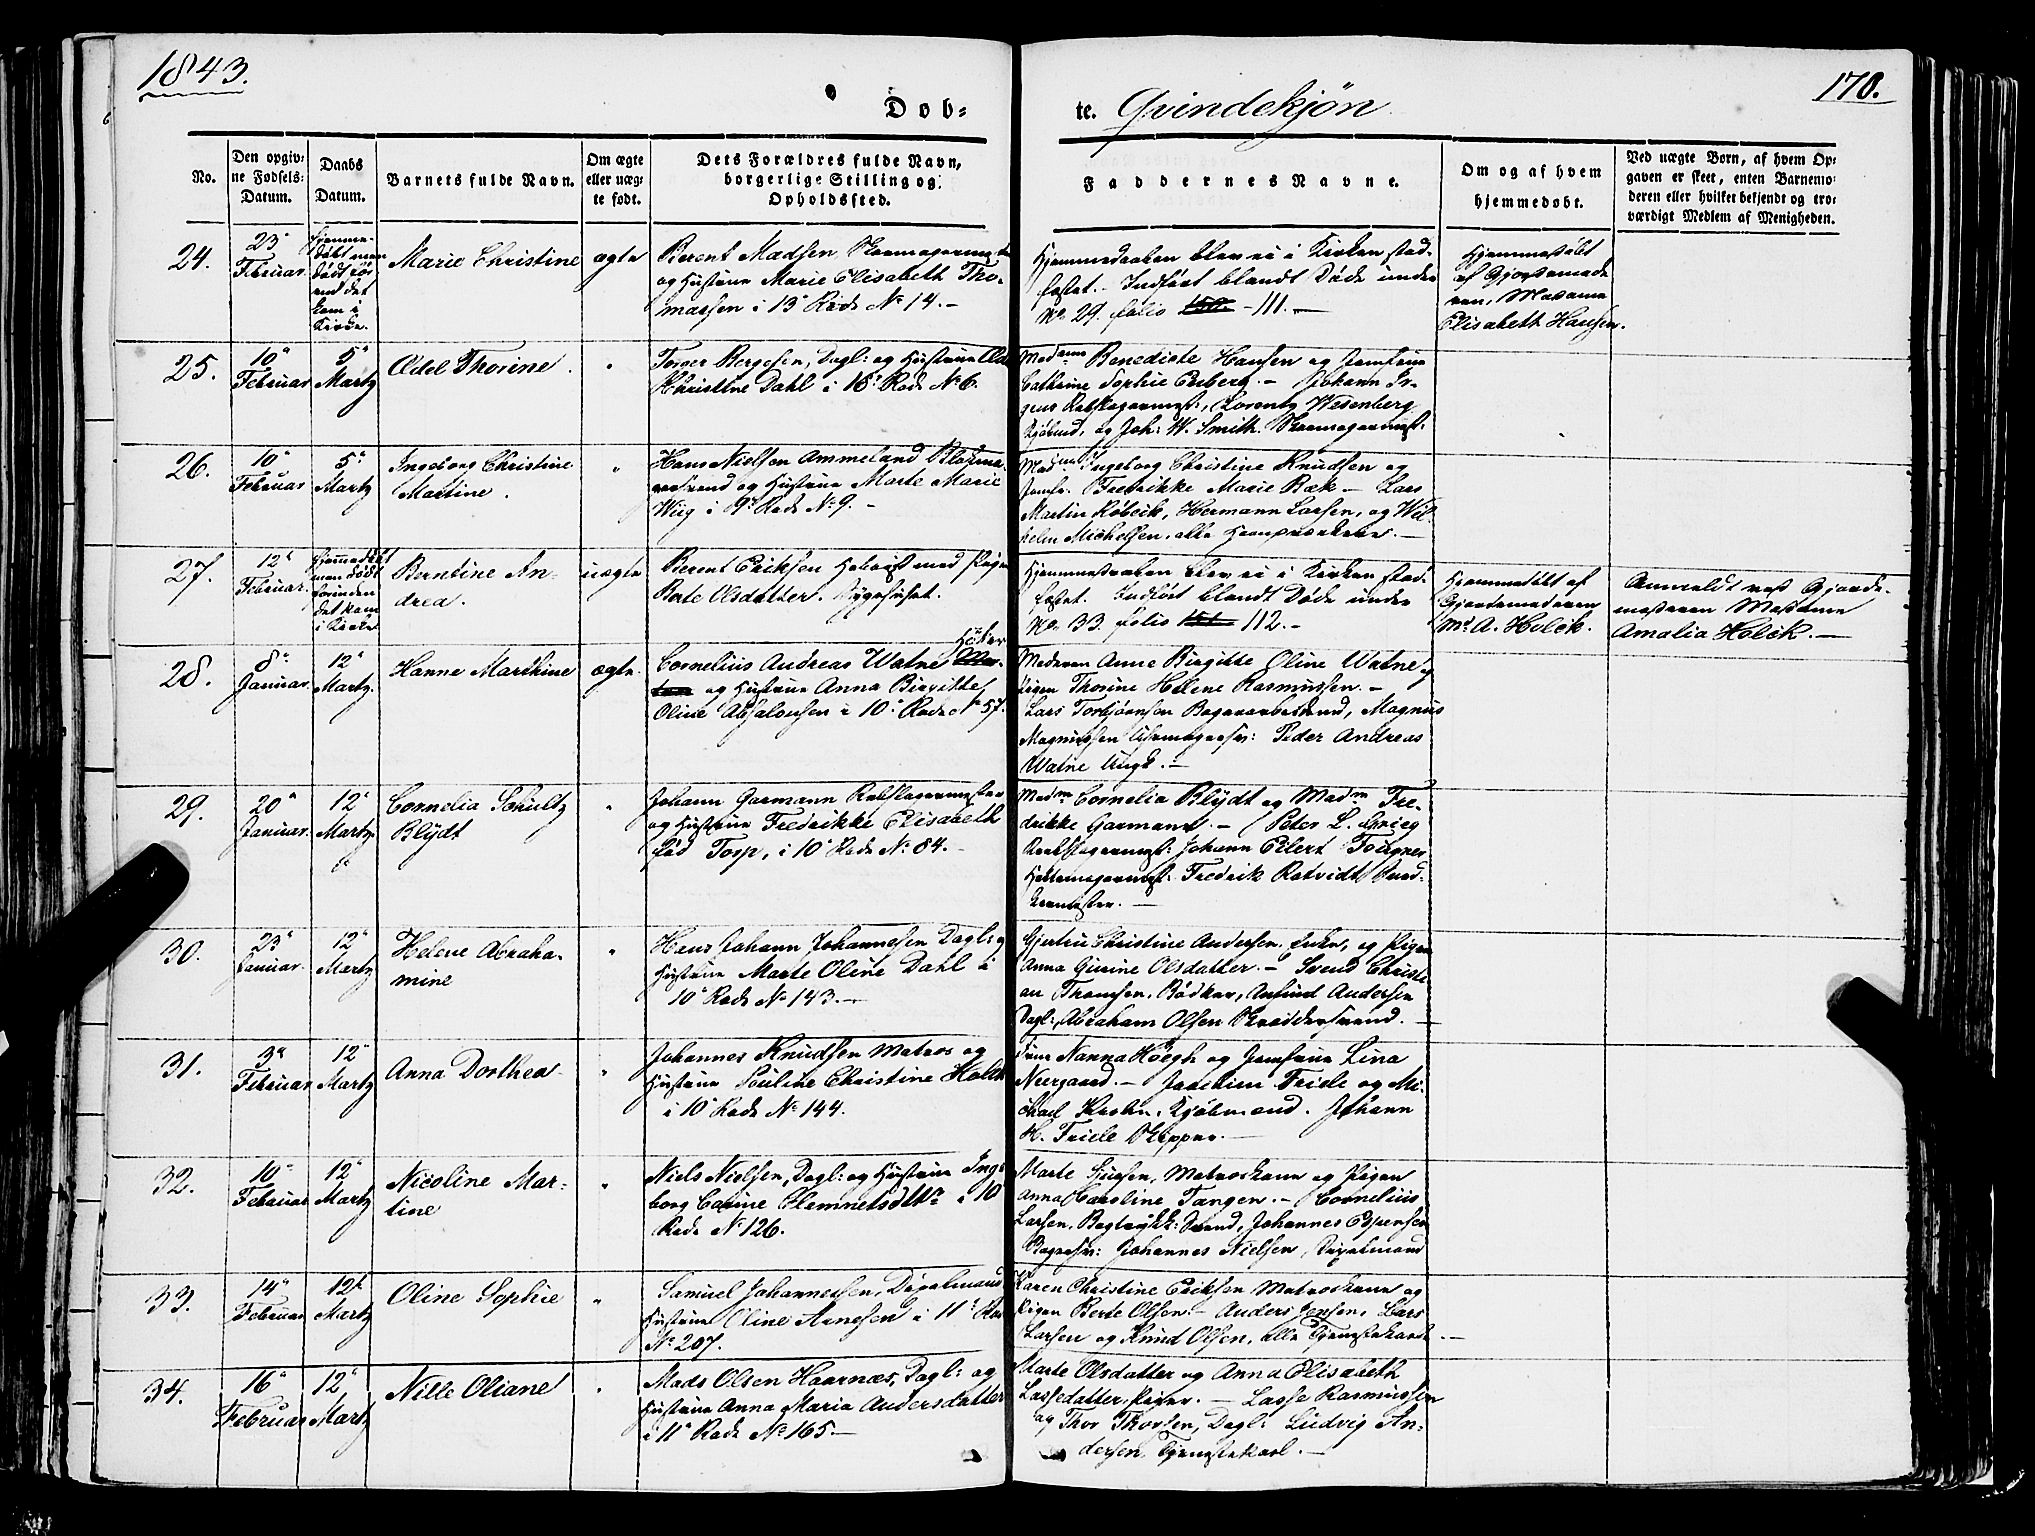 1843.
170.
Dob-
te. Qvindekjøn
No.
Den opgiv-
ne Fødsels-
Datum.
Daabs
Datum.
Barnets fulde Navn.
Om ægte
eller uæg-
te født.
Dets Forældres fulde Navn,
borgerlige Stilling og
Opholdssted.
Faddernes Navne.
Om og af hvem
hjemmedøbt.
Ved uægte Born, af hvem Op-
gaven er skeet, enten Barnemo-
deren eller hvilket bekjendt og tro-
værdigt Medlem af Menigheden.
24.
23
Februar.
Hjemme-
døbt men
dødt før
end det
kom i
Kirke.
Marie Christine
ægte
Berent Madsen, Skomagermester
og Hustrue Marie Elisabeth Tho-
massen i 13 Rode No 14. -
Hjemmedaaben blev ei i Kirken stad-
fæstet. - Indført blandt Døde under
No 29. folio 150. - 111. -
Hjemmedøbt
af Gjordemode
ren, Madame
Elisabeth Hansen.
25.
10
Februar
5
Martz
Edel Thorine.
"
Torger Bergesen, Dagl: og Hustrue
Christine Dahl i 18 Rode No 6.
Madame Benedicte Hansen og Jomfrue
Cathrine Sophie - Johann Jr-
gens Rebslagermest:, Lorentz Wesenberg
Kjøbmd, og Joh: W. Smith Skomagermest.
26.
10
Februar
5
Martz
Ingeborg Christine
Martine.
"
Hans Nielsen Ammeland
svend og Hustrue Marte Marie
Wiig i 9 Rode No 9. -
Madme Ingeborg Christine Knudsen og
Jomfr. Fredrikke Marie Bæk - Lars
Martin Røbeik, Hermann Larsen, og Wil-
helm Michelsen, alle
27.
12
Februar.
Hjemmedøbt
men dødt
forinden
det kom
i Kirke
Berntine An-
drea.
uægte
Berent Eriksen med Pigen
Berte Olsdatter. Sygehuset.
Hjemmedaaben blev ei i Kirken stad-
fæstet. Indført blandt Døde under
No 33 folio 151 112. -
Hjemmedøbt af
Gjordemoderen
Md A. Holck.
Anmeldt ved Gjorde-
moderen Madame
Amalia Holck. -
28.
8
Januar.
12
Martz.
Hanne Marthine
ægte.
Cornelius Andreas Watne Høker
og Hustrue Anna Birgitte
Oline Absalonsen i 10 Rode No 57.
Moderen Anne Birgitte Oline Watne og
Pigen Thorine Helene Rasmussen. -
Lars Torbjørnsen Bagersvend, Magnus
Magnussen Peder Andreas
Watne Ungk. -
29.
20
Januar.
12
Martz
Cornelia Schultz
Blÿdt
"
Johann Garmann Rebslagermester
og Hustrue Fredrikke Elisabeth
fød Torp, i 10 Rode No 84. -
Madm Cornelia Blÿdt og Madm Fre-
drikke Garmann. - Peter L. Grieg
Rebslagermest: Johann Eilert Fougner
Hattemagermest: Fredrik Ratvidt
30.
23
Januar.
12
Martz
Helene Abraha-
mine
"
Hans Johann Johannesen Dagl: og
Hustrue Marte Oline Dahl i
10 Rode No 143. -
Gjertru Christine Andersen. Enke, og Pigen
Anna Gurine Olsdatter. - Svend Christi-
an Thomsen, Bødker, Anfind Andersen
Dagl:, Abraham Olsen Skræddersvend. -
31.
3
Februar
12
Martz
Anna Dorthea
"
Johannes Knudsen Matros og
Hustrue Pouline Christine Holck
i 10 Rode No 144.
Frue Nanna Høegh og Jomfrue Lina
Neergaard. - Joachim Friele og Mi-
chael Krohn, Kjøbmænd. Johann
H. Friele Skipper. -
32.
10
Februar
12
Martz
Nicoline Mar-
tine
"
Niels Nielsen, Dagl: og Hustrue Inge-
borg Carine Clemmetsdtr i 10
Rode No 126.
Marte Matroskone og Pigen
Anna Caroline Tangen. - Cornelius
Larsen, Bogtrykk: Svend, Johannes Espensen
Johannes Nielsen
33.
14
Februar
12
Martz
Oline Sophie
"
Samuel Johannessen,
Hustrue Oline Arnesen i 11 Rode
No 207.
Karen Christine Eriksen Matroskone og
Pigen Berte Olsen - Anders Jensen, Lars
Larsen og Knud Olsen, alle Tjenestekarle. -
34.
16
Februar
12
Martz
Nille Oliane
"
Mads Olsen Haarnæs, Dagl: og
Hustrue Anna Maria Andersdatter
i 11 Rode No 165. -
Marte Olsdatter og Anna Elisabeth
Lassedatter, Piger. - Lasse Rasmussen
og Thor Thorsen, Dagl: Ludvig An-
dersen, Tjenestekarl. -